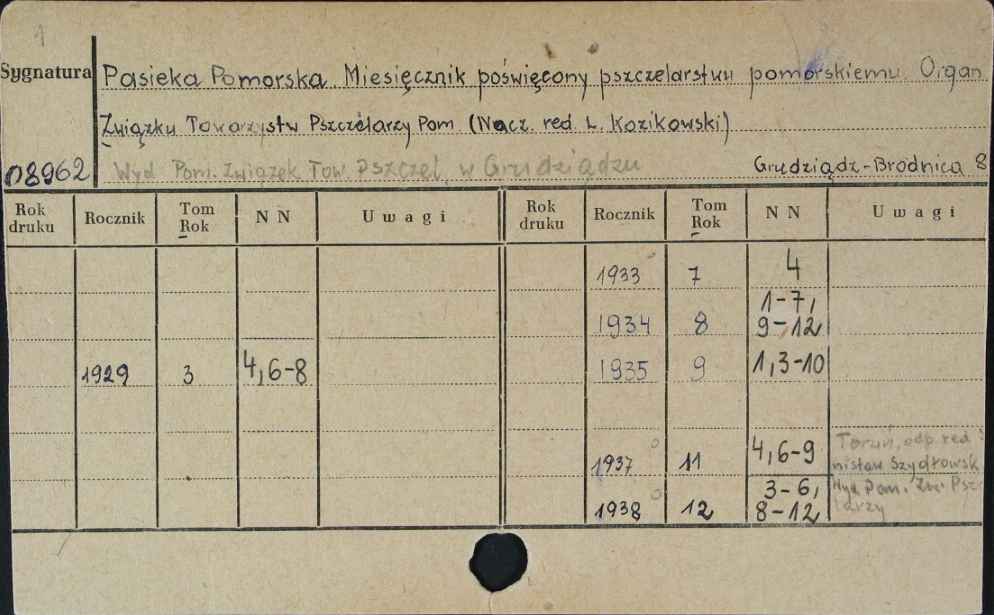 1
Sygnatura Pasieka Pomorska. Miesięcznik poświęcony pszczelarstwu pomorskiemu. Organ
Związku Towarzystw Pszczelarzy Pom. (Nacz. red. L. Kozikowski)
08962 Wyd. Pom. Związek Tow. Pszczel. w Grudziądzu Grudziądz-Brodnica 8
Rok druku Rocznik Tom Rok NN Uwagi Rok druku Rocznik Tom Rok NN Uwagi
1933 7 4
1934 8 1-7, 9-12
1929 3 4,6-8 1935 9 1,3-10
1937 11 4,6-9 Toruń, odp. red.
nisław Szydłowsk
1938 12 3-6, 8-12 Wyd. Pom. Zw. Psz
larzy